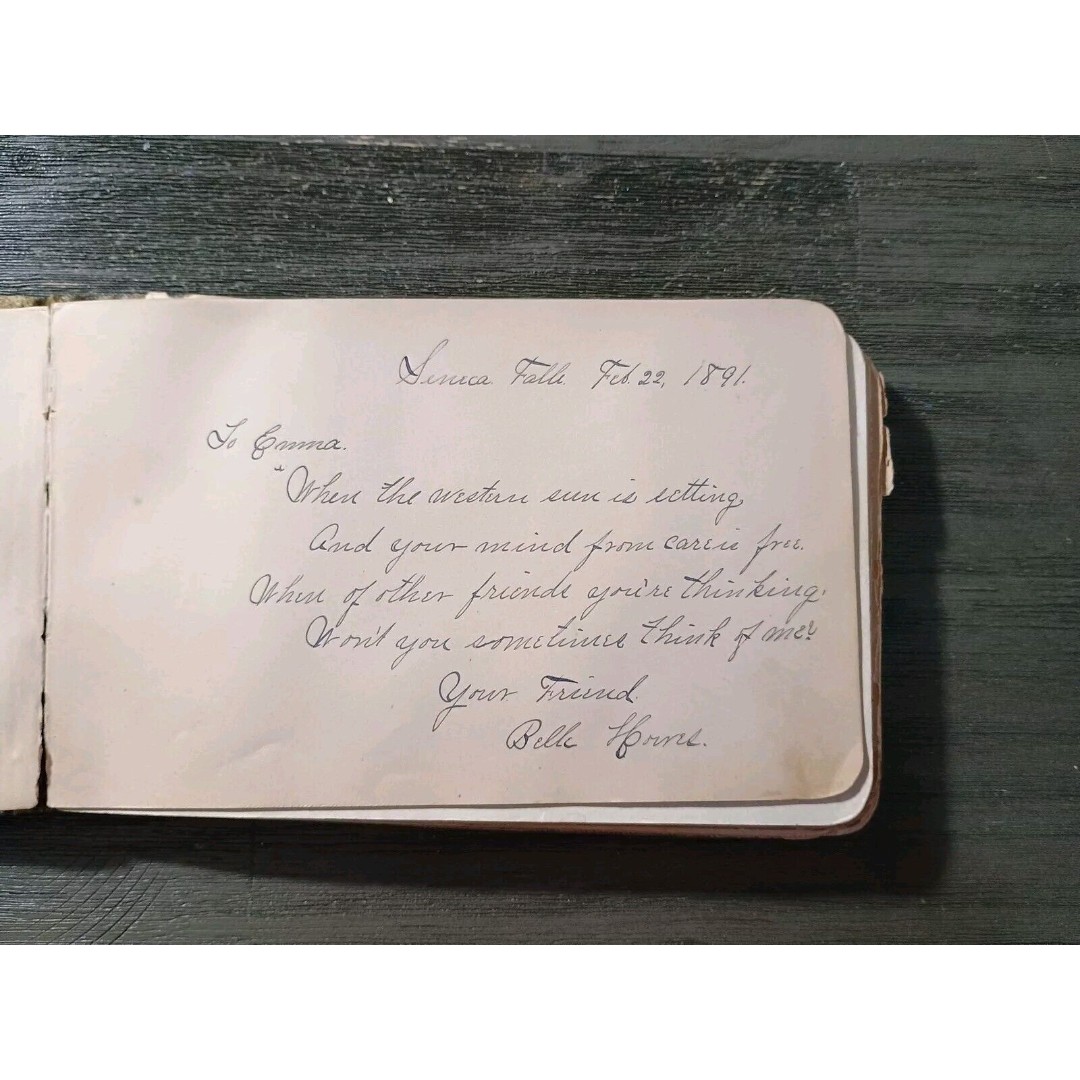 Seneca Falls. Feb. 22, 1891.
To Emma.
"When the western sun is setting,
And your mind from care is free.
When of other friends you're thinking.
Won't you sometimes think of me?
Your Friend.
Belle